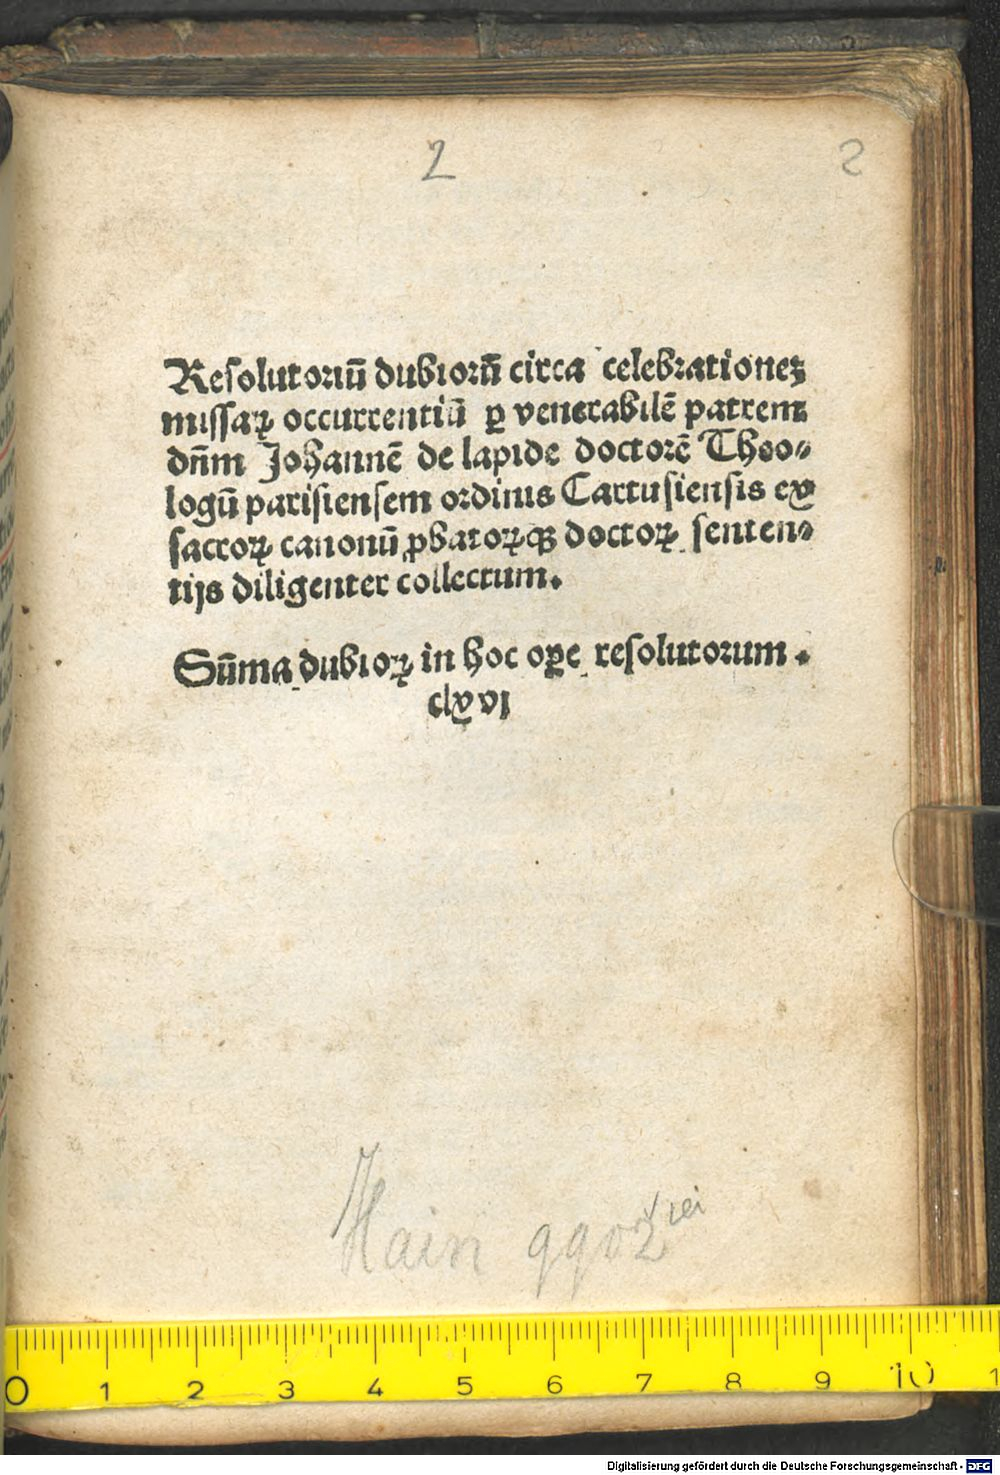 2 2
Resolutoriū dubiorū circa celebrationeꝫ
missaꝝ occurrentiū ꝑ venerabilē patrem
dn̄m Johannē de lapide doctorē Theo⸗
logū parisiensem ordinis Cartusiensis ex
sacroꝝ canonū ꝓbatoꝝqꝫ doctoꝝ senten⸗
tijs diligenter collectum.
Sūma dubioꝝ in hoc oꝑe resolutorum.
clxvi
Hain 9902
0 1 2 3 4 5 6 7 8 9 10 1
Digitalisierung gefördert durch die Deutsche Forschungsgemeinschaft - DFG